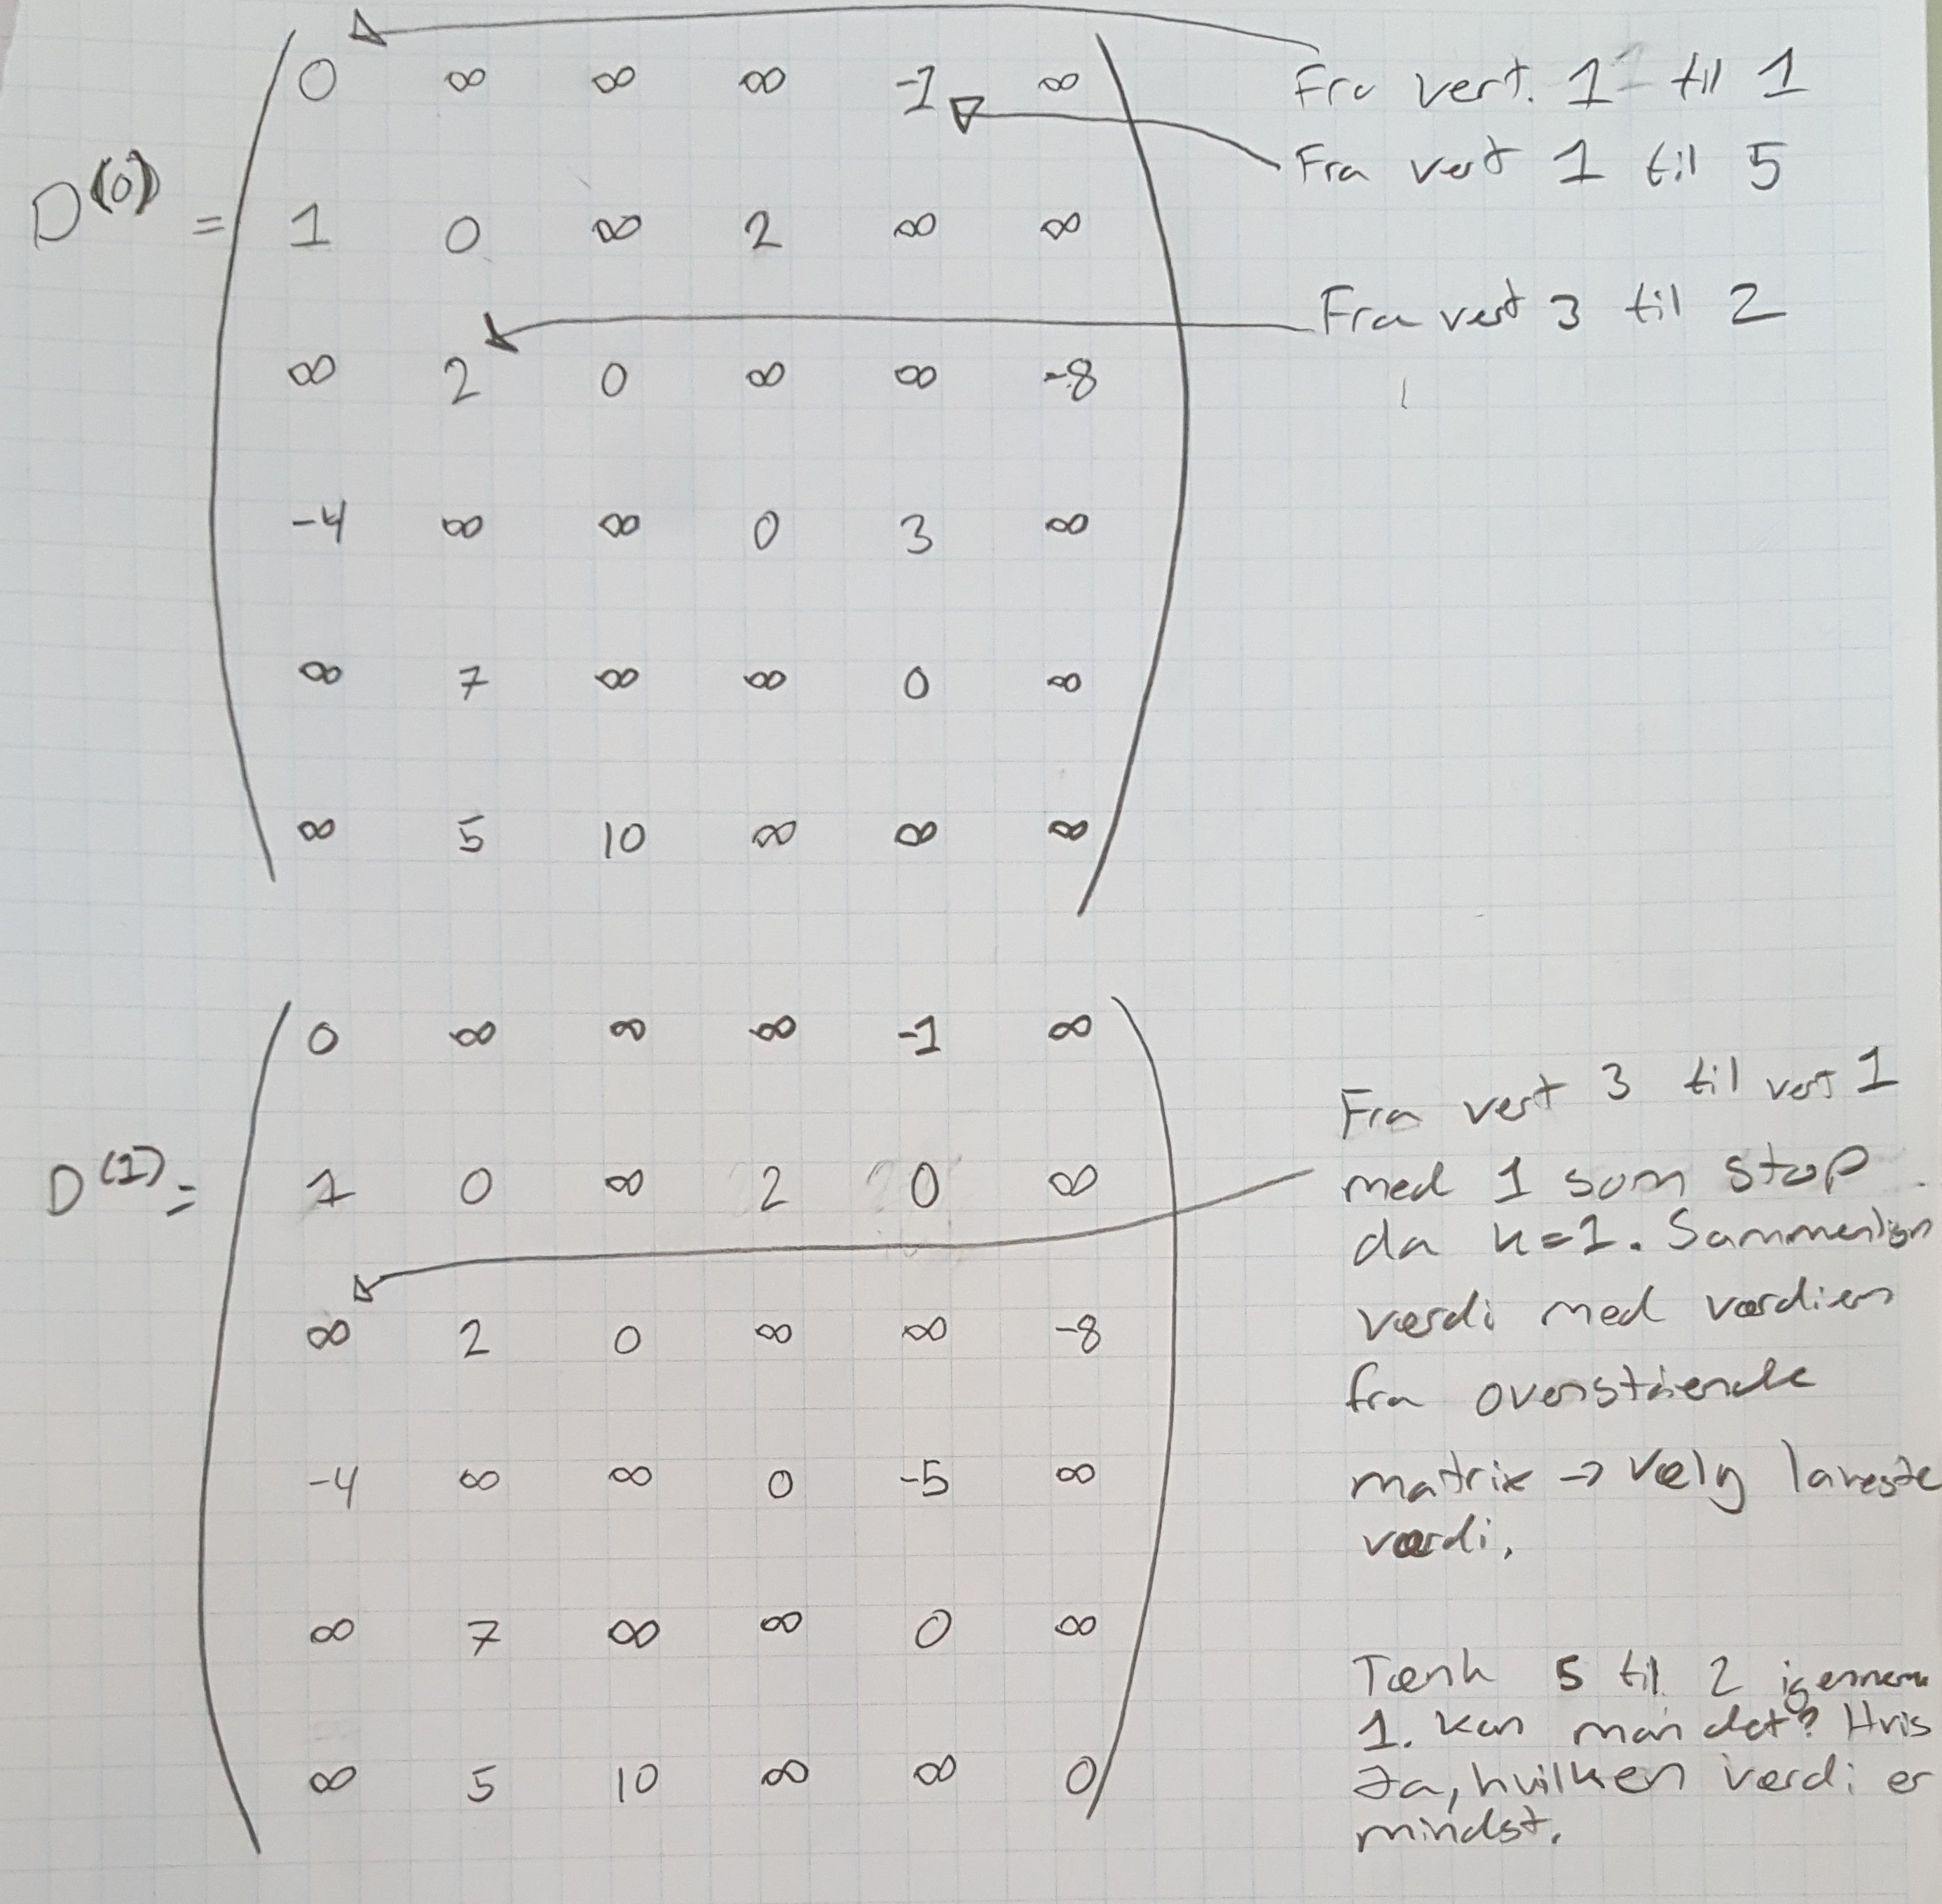 0 ∞ ∞ ∞ -1 ∞
Fra vert. 1 til 1
Fra vert 1 til 5
D(0) =
1 0 ∞ 2 ∞ ∞
Fra vert 3 til 2
∞ 2 0 ∞ ∞ -8
-4 ∞ ∞ 0 3 ∞
∞ 7 ∞ ∞ 0 ∞
∞ 5 10 ∞ ∞ ∞
0 ∞ ∞ ∞ -1 ∞
D(1) =
1 0 ∞ 2 0 ∞
∞ 2 0 ∞ ∞ -8
-4 ∞ ∞ 0 -5 ∞
∞ 7 ∞ ∞ 0 ∞
∞ 5 10 ∞ ∞ 0
Fra vert 3 til vert 1
med 1 som stop
da k=1. Sammenlign
værdi med værdien
fra ovenstående
matrix → Vælg laveste
værdi.
Tænk 5 til 2 igennem
1. kan man det? Hvis
Ja, hvilken værdi er
mindst.